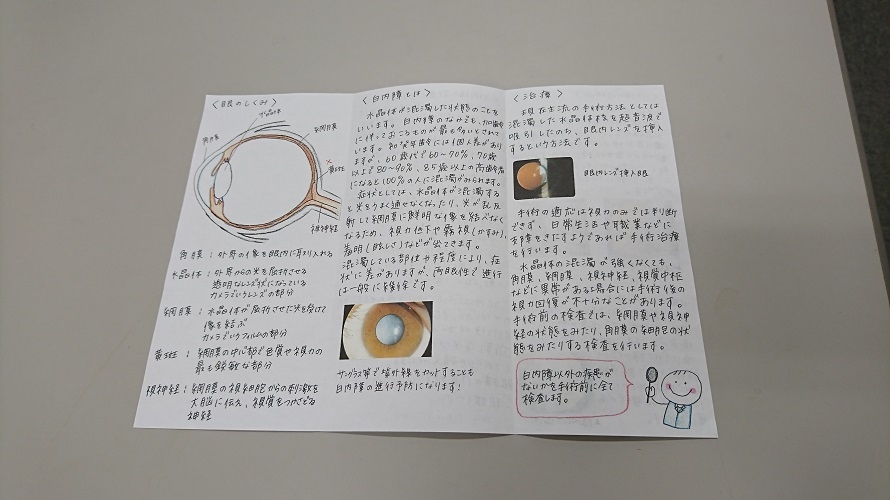 〈眼のしくみ〉
水晶体
角膜
網膜
黄斑
視神経
角膜：外界の像を眼内に取り入れる
水晶体：外界からの光を屈折させる
透明なレンズ状になっている
カメラでいうレンズの部分
網膜：水晶体が屈折させた光を受けて
像を結ぶ
カメラでいうフィルムの部分
黄斑：網膜の中心部で色覚や視力の
最も鋭敏な部分
視神経：網膜の視細胞からの刺激を
大脳に伝え、視覚をつかさどる
神経
〈白内障とは〉
水晶体が混濁した状態のことを
いいます。白内障のなかでも、加齢
に伴っておこるものが最も多いとされて
います。初発年齢には個人差があり
ますが、60歳代で60〜70%、70歳
以上で80〜90%、85歳以上の高齢者
になると100%の人に混濁がみられます。
症状としては、水晶体が混濁する
と光をうまく通せなくなったり、光が乱反
射して網膜に鮮明な像を結べなく
なるため、視力低下や霧視(かすみ)、
羞明(眩しさ)などが出てきます。
混濁している部位や程度により、症
状に差がありますが、両眼性で進行
は一般に緩徐です。
サングラス等で紫外線をカットすることも
白内障の進行予防になります！
〈治療〉
現在主流の手術方法としては
混濁した水晶体核を超音波で
吸引したのち、眼内レンズを挿入
するという方法です。
眼内レンズ挿入眼
手術の適応は視力のみでは判断
できず、日常生活や職業などに
支障をきたすようであれば手術治療
を行います。
水晶体の混濁が強くなくても、
角膜、網膜、視神経、視覚中枢
などに異常がある場合には手術後の
視力回復が不十分なことがあります。
手術前の検査では、網膜や視神
経の状態をみたり、角膜の細胞の状
態をみたりする検査を行います。
白内障以外の疾患が
ないかを手術前に全て
検査します。